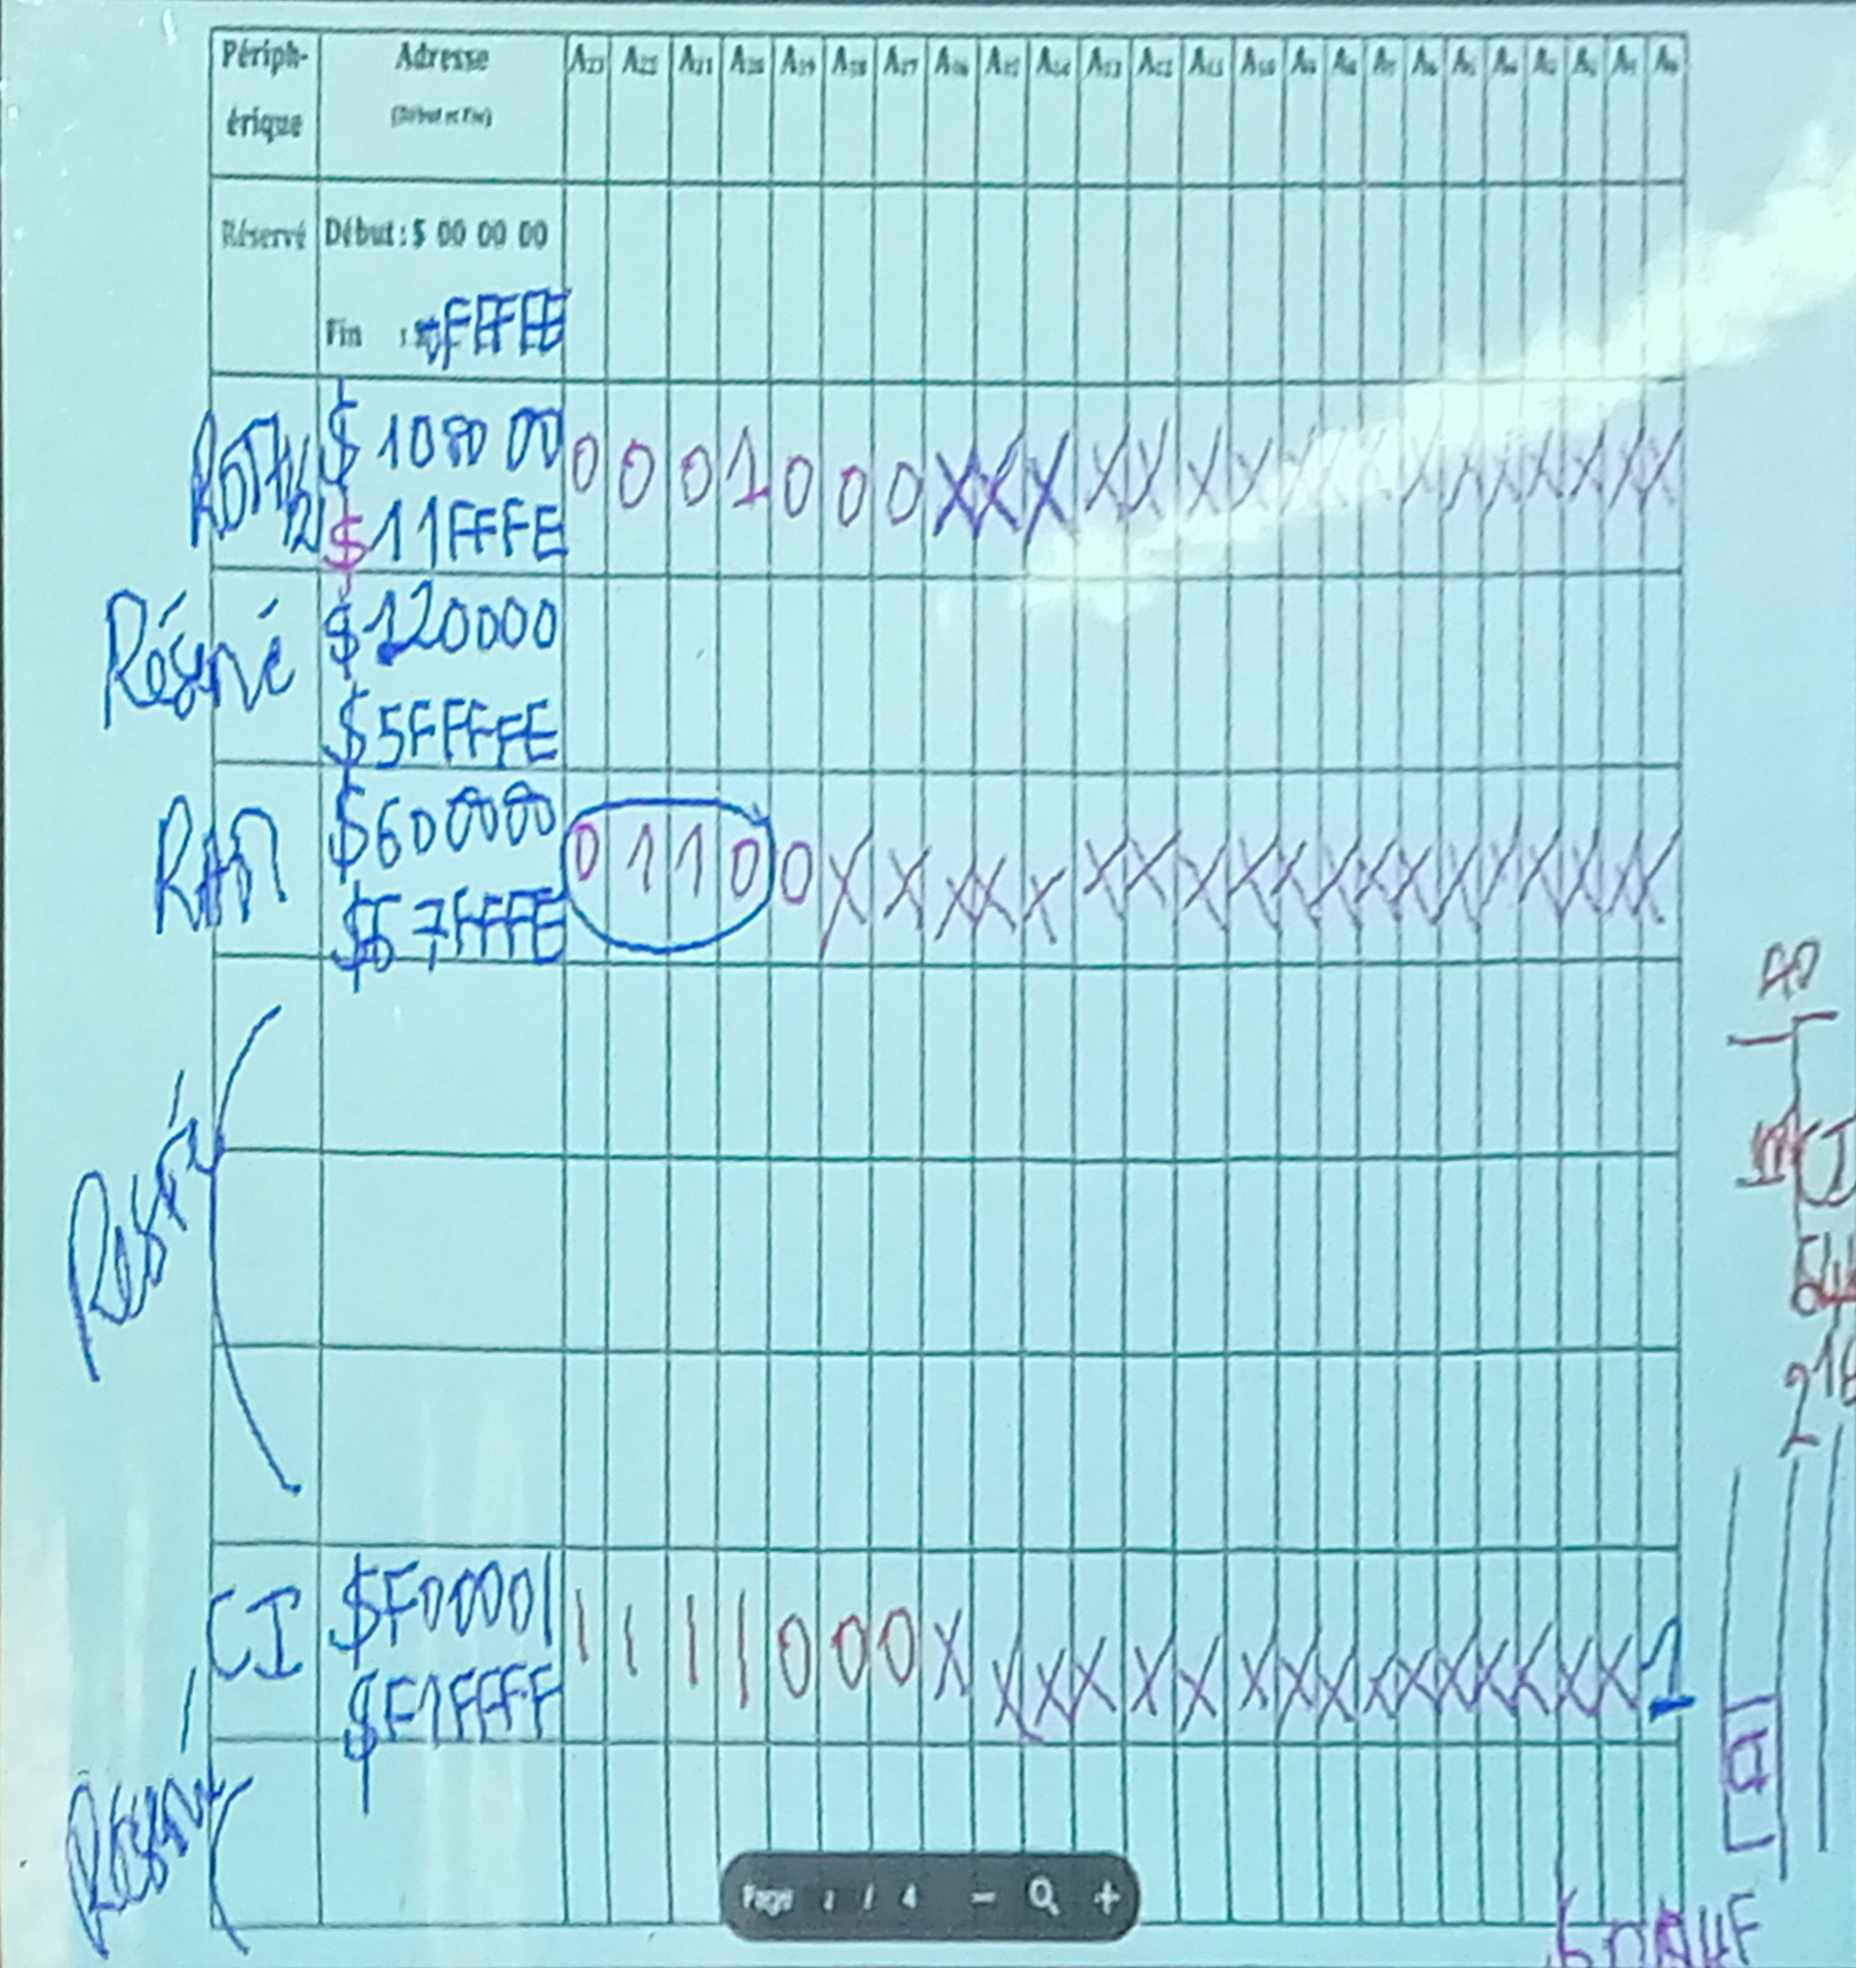 Périph-
érique
Adresse
(Début et Fin)
A23 A22 A21 A20 A19 A18 A17 A16 A15 A14 A13 A12 A11 A10 A9 A8 A7 A6 A5 A4 A3 A2 A1 A0
Réservé
Début : $ 00 00 00
Fin :
FFFE
$ 100000
$11FFFE
0 0 0 1 0 0 0 X X X X X X X X X X X X X X X X X
$120000
$5FFFFE
RAM
$600000
$67FFFE
0 1 1 0 0 X X X X X X X X X X X X X X X X X X X
CI
$F00001
$F1FFFF
1 1 1 1 0 0 0 X X X X X X X X X X X X X X X X 1
Page / 4 − +